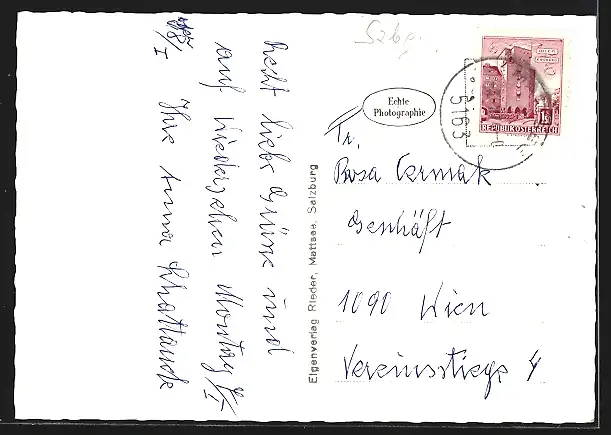 Recht liebe Grüße und
auf Wiedersehen Montag 8/I
Ihre Anna
8/I
Szbg.
Echte
Photographie
Eigenverlag Rieder, Mattsee, Salzburg
5163
1.50
REPUBLIK ÖSTERREICH
Fr.
Rosa Cermak
Geschäft
1090 Wien
Vereinsstiege 4